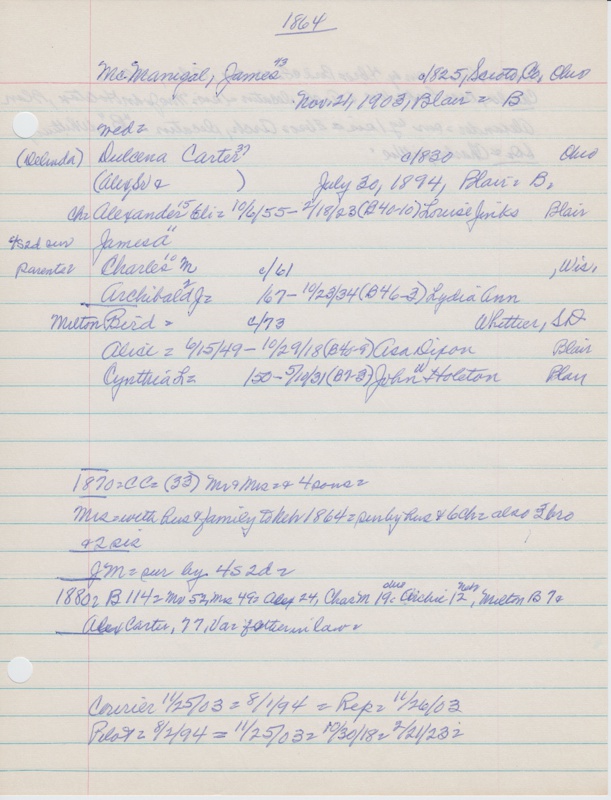 1864
McManigal, James 43 c/1825, Scioto, Co, Ohio
Nov. 21, 1903, Blair = B
wed =
(Delinda) Dulcena Carter 37 c/1830 Ohio
(Alex Sr & ) July 30, 1894, Blair = B,
ch = Alexander 15 Eli = 10/6/55 - 2/18/23 (B 40-10) Louise Jinks Blair
4s 2d sur James a 11
parents = Charles 10 M c/61 , Wis.
Archibald 2 J = /67 - 10/23/34 (B 46-3) Lydia Ann
Milton Bird = c/73 Whittier, S.D.
Alice = 6/15/49 - 10/29/18 (B 40-9) Asa Dixon Blair
Cynthia L = /50 - 5/19/31 (B 2-3) John W Holston Blair
1870 = CC = (33) Mr & Mrs = & 4 sons =
Mrs = with hus & family to Nebr 1864 = sur by hus & 6 ch = also 3 bro
& 2 sis
J M = sur by 4s 2d =
1880 = B 114 = Mr 52, Mrs 49 = Alex 24, Chas M 19 = Archie 12 Nebr, Milton B 7 =
Alex Carter, 77, Va = father in law =
Courier 11/25/03 = 8/1/94 = Rep = 11/26/03
Pilot = 8/2/94 = 11/25/03 = 10/30/18 = 2/21/23 =